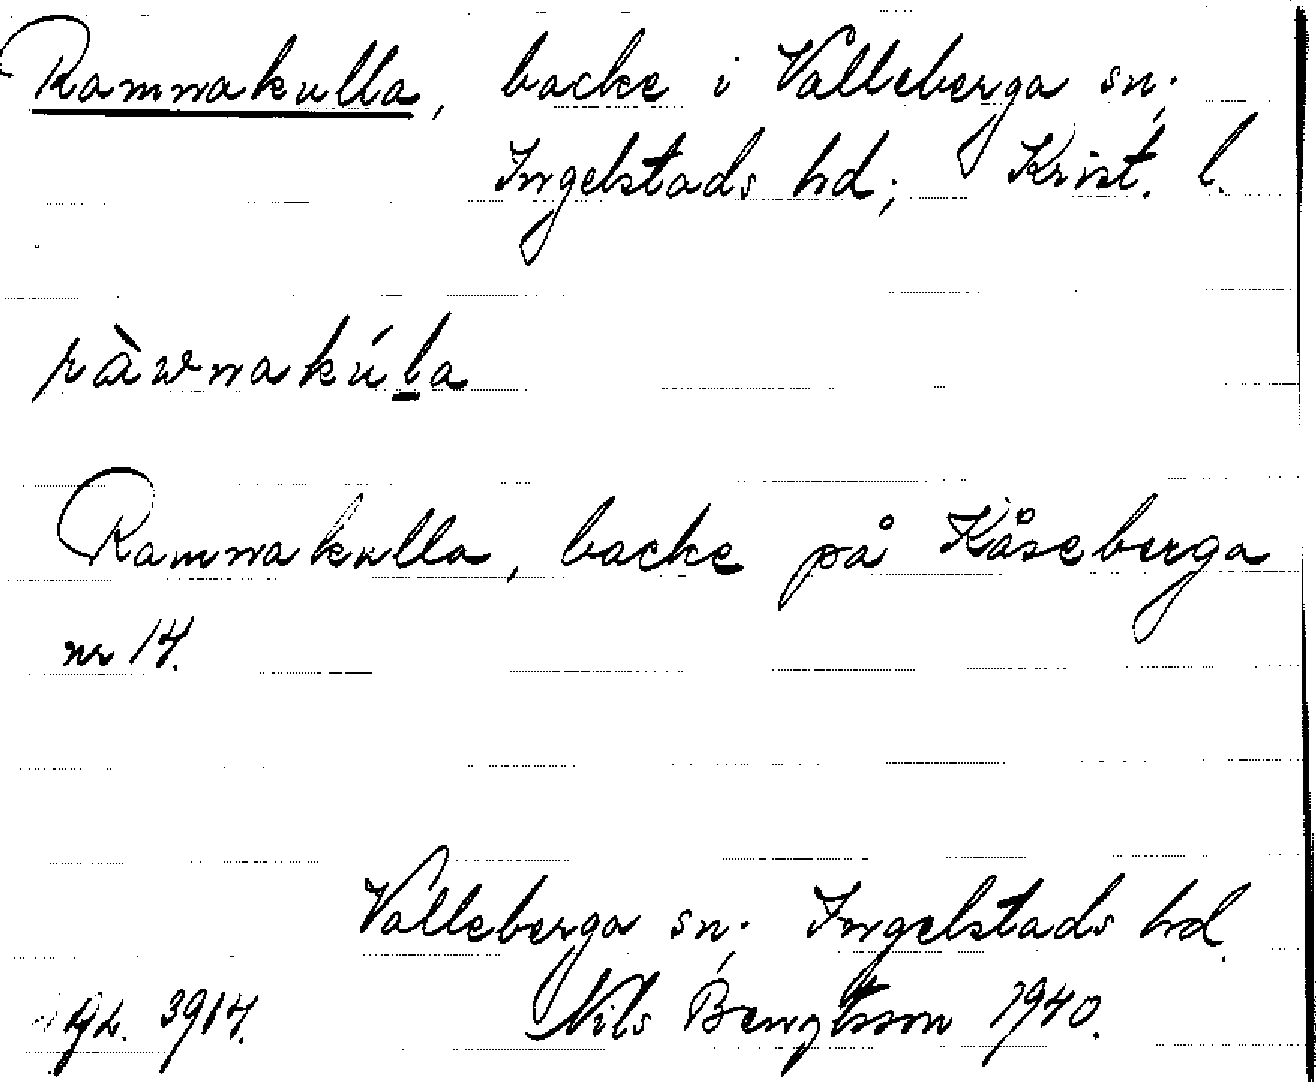 Ramnakulla, backe i Valleberga sn;
Ingelstads hd; Krist. l.
ràwnakúḻa
Ramnakulla, backe på Kåseberga
nr 14.
Valleberga sn; Ingelstads hd.
3914. Nils Bengtsson 1940.